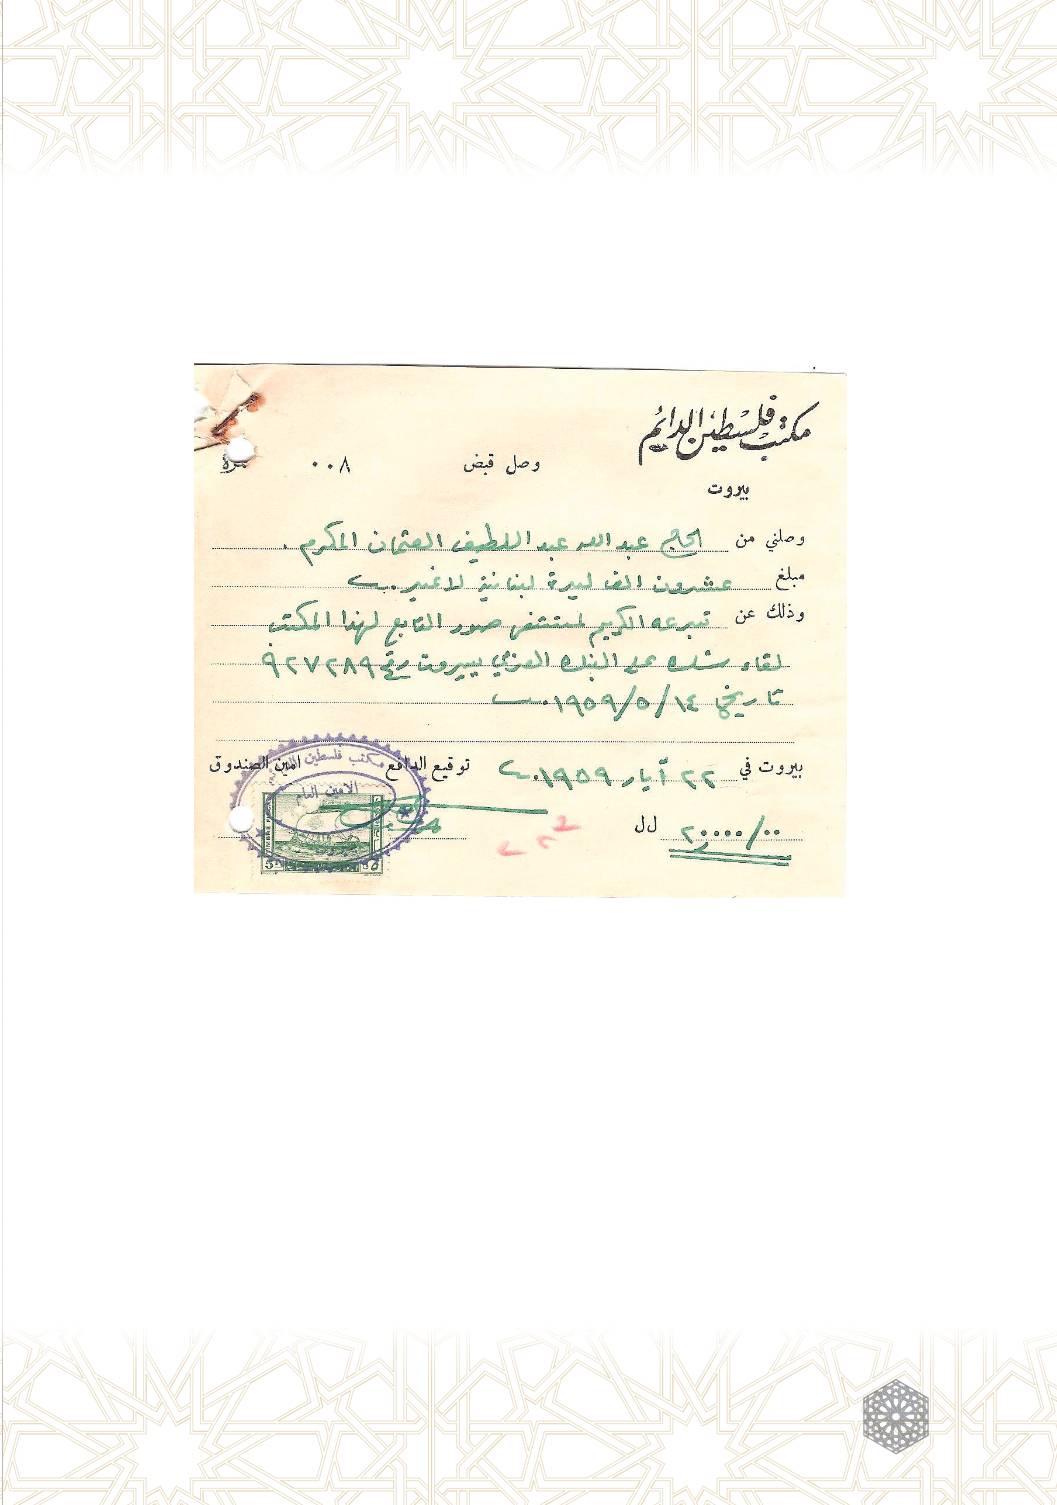 مكتب فلسطين الدائم
وصل قبض ٠٠٨ نمرة
بيروت
وصلني من الحاج عبد الله عبد اللطيف العثمان المكرم .
مبلغ عشرون الف ليرة لبنانية لا غير .
وذلك عن تبرعه الكريم لمستشفى صور التابع لهذا المكتب
لقاء شك على البنك العربي ببيروت رقم ٩٢٧٢٨٩
تاريخ ١٤/٥/١٩٥٩.
بيروت في ٢٢ آيار ١٩٥٩. توقيع الدافع امين الصندوق
مكتب فلسطين
الامين العام
٢٠٠٠٠/٠٠ ل ل